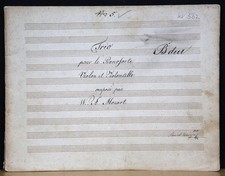 Trio
B dur
pour le Pianoforte
Violon et Violoncelle
composé par
W. A. Mozart